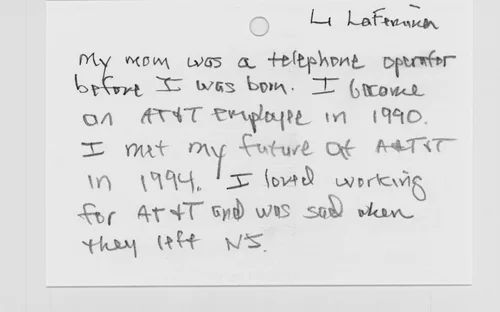 My mom was a telephone operator
before I was born. I became
an AT&T Employee in 1990.
I met my future at AT&T
in 1994. I loved working
for AT&T and was sad when
they left NJ.